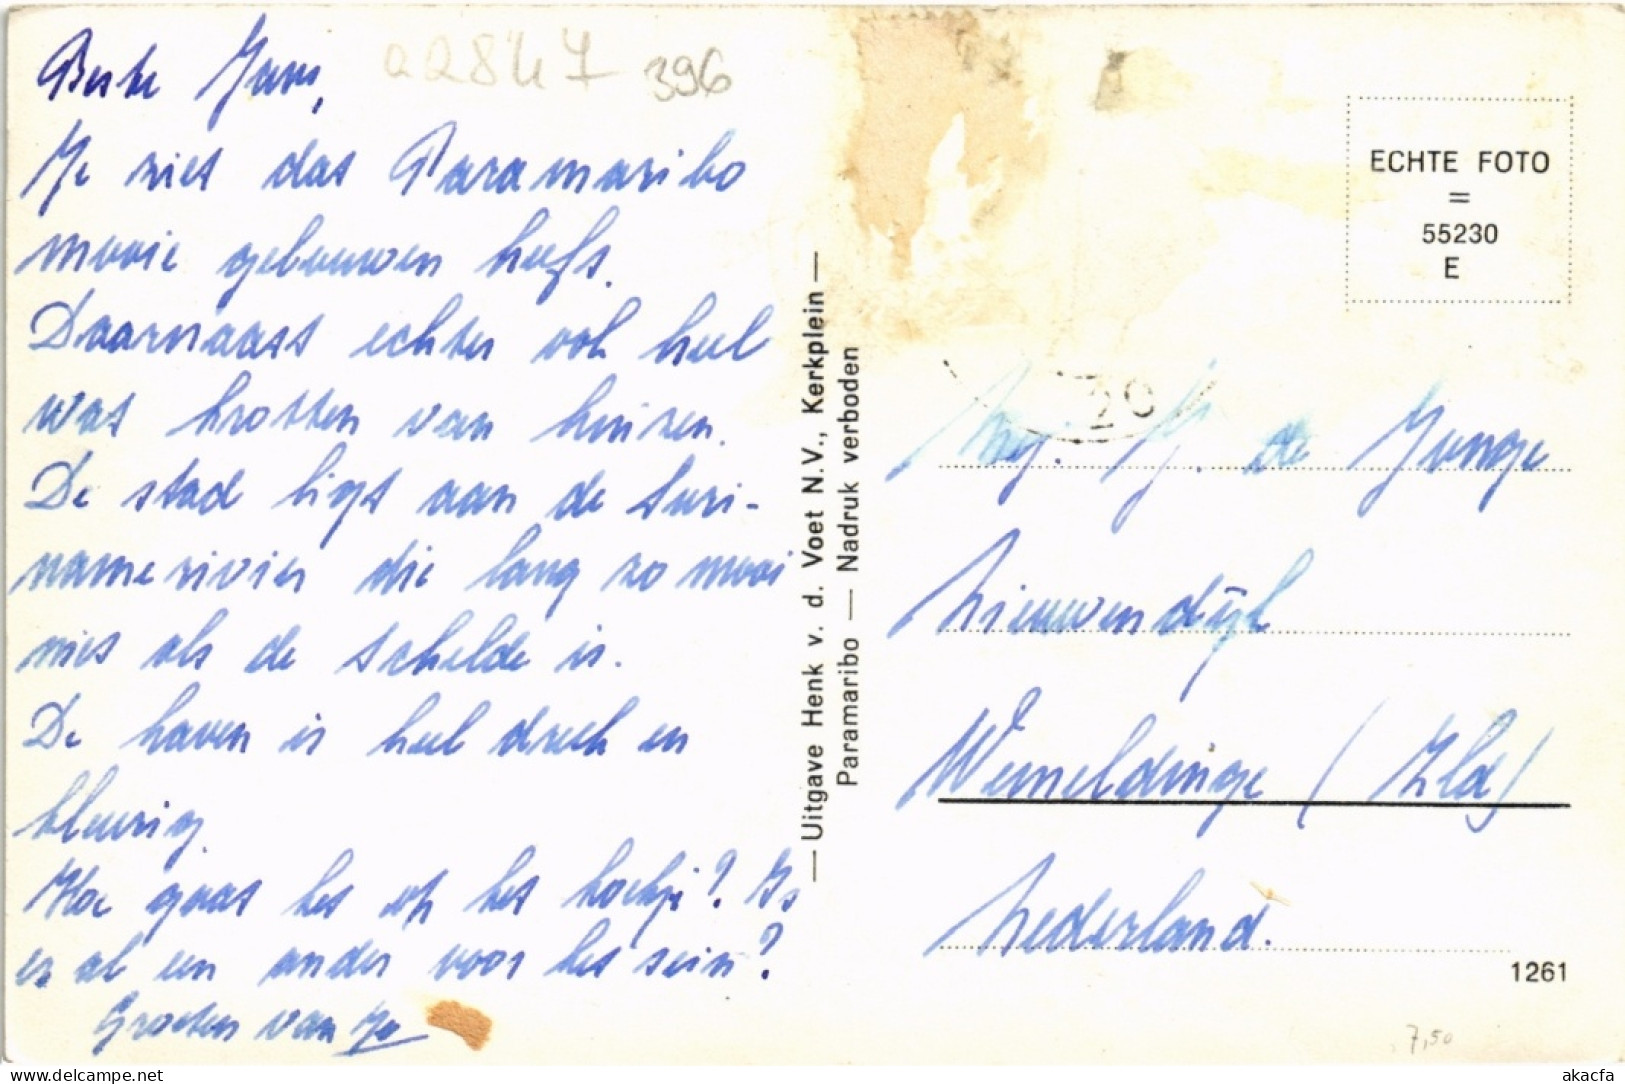 22847 396
Beste Jans,
Je ziet dat Paramaribo
mooie gebouwen heeft.
Daarnaast echter ook heel
wat krotten van huizen.
De stad ligt aan de Suri-
namerivier die lang zo mooi
niet als de Schelde is.
De haven is heel druk en
kleurig.
Hoe gaat het op het hoekje? Is
er al een ander voor het sein?
Groeten van Jo
— Uitgave Henk v. d. Voet N.V., Kerkplein —
Paramaribo — Nadruk verboden
ECHTE FOTO
=
55230
E
20
Mej. J. de Jonge
Nieuwendijk
Wemeldinge (Zld)
Nederland.
1261
7,50
delcampe.net
akacfa